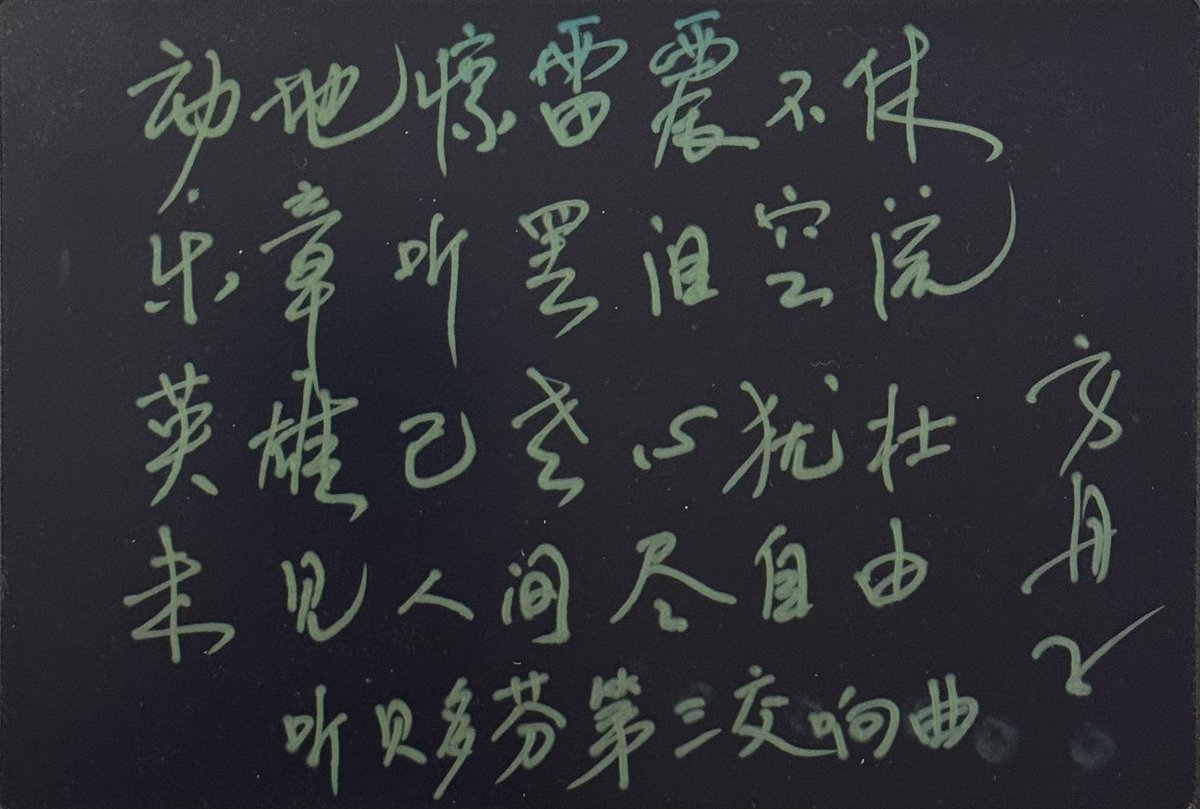 动地惊雷震不休
乐章听罢泪空流
英雄已老心犹壮
未见人间尽自由
听贝多芬第三交响曲
方舟